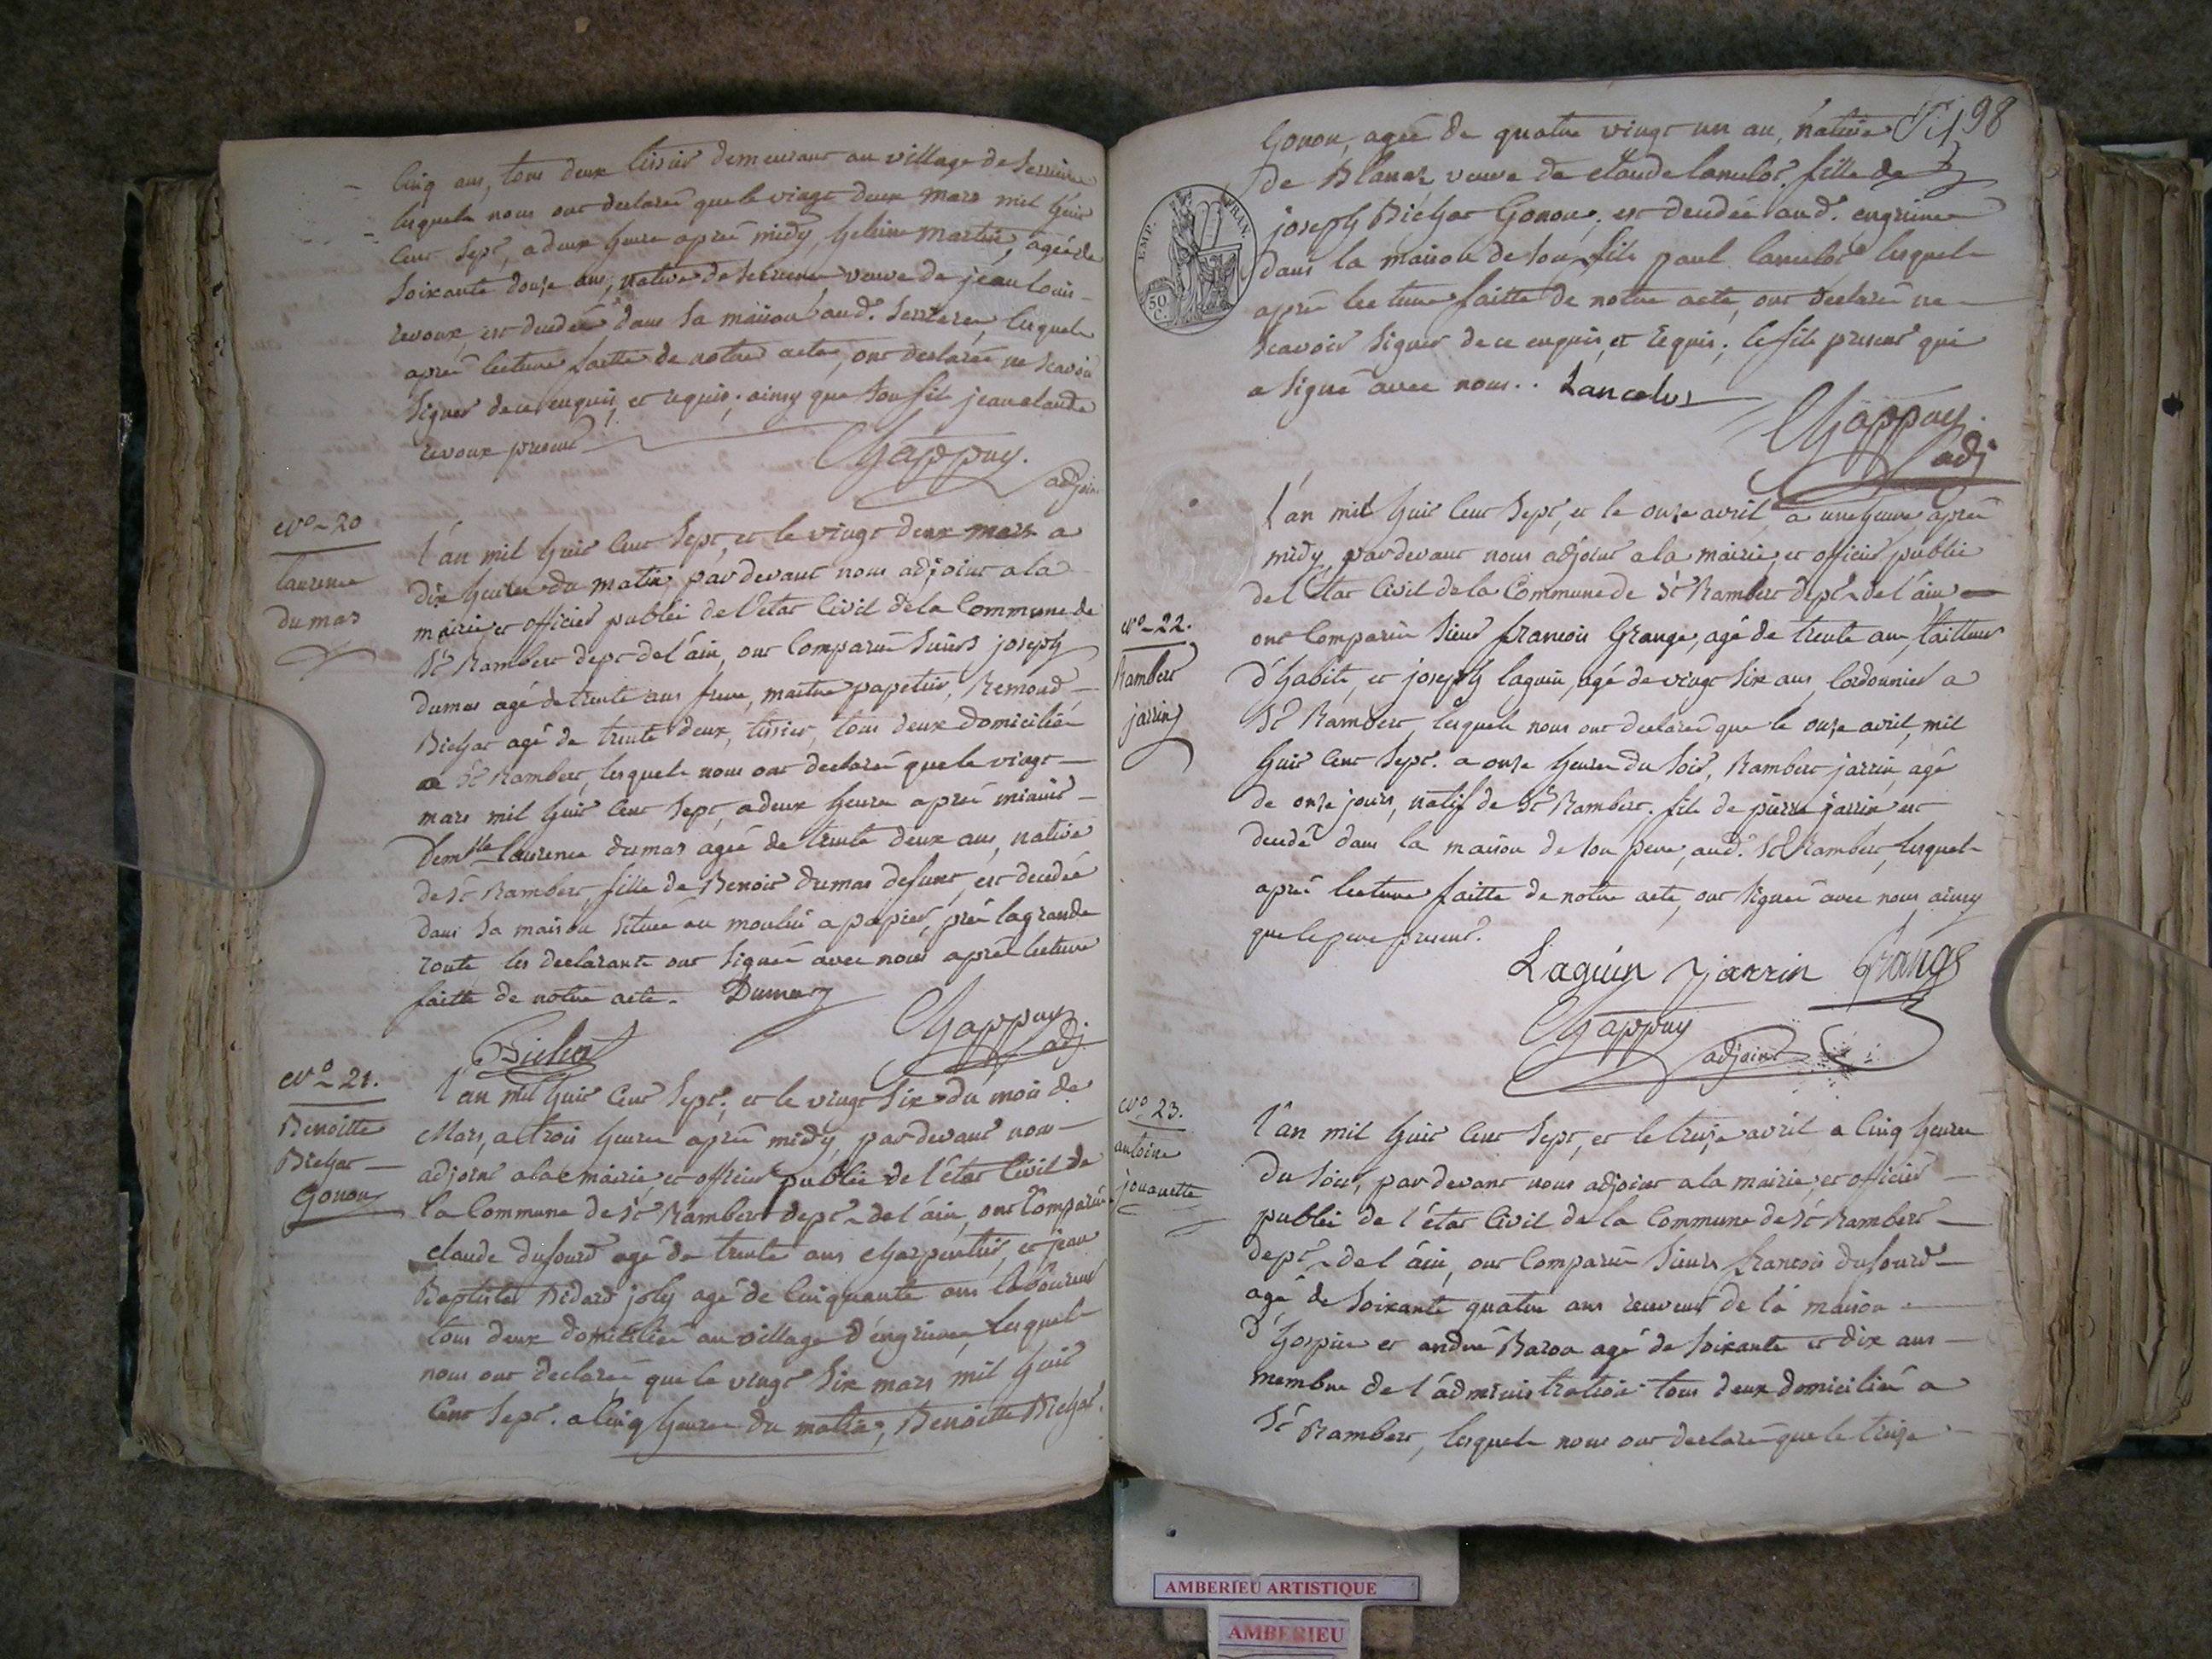 Cinq ans, tous deux tissier demeurant au village de Serriere
lesquels nous ont declaré que le vingt deux mars mil huit
Cent sept, a deux heure apreé midy, helaine Martin, agée de
Soixante douze ans, native de Serriere veuve de jean louis
revoux, est decedée dans sa maison aud. Serriere, lesquels
apreé lecture faitte de notre acte, ont declarée ne scavoir
signer de ce enquis, et requis; ainsy que son fils jean claude
revoux present
Chappuy.
adjoint
No 20
laurence
dumas
l'an mil huit Cent Sept, et le vingt deux mars a
dix heures du matin, pardevant nous adjoint a la
mairie et officier public de l'etat Civil de la Commune de
St Rambert dept de l'ain, ont Comparu Sieurs joseph
dumas agé de trente ans frere, maitre papetier, Remond
Bichat agé de trente deux, tissier, tous deux domicilié
a St Rambert, lesquels nous ont declaré que le vingt
mars mil huit Cent Sept, a deux heure apreé minuit
Demlle laurence dumas agée de trente deux ans, native
de St Rambert, fille de Benoit dumas defunt, est decedée
dans sa maison située au moulin a papier, preé la grande
route les declarants ont signée avec nous apreé lecture
faitte de notre acte. Dumas
Chappuy
adj
Bichat
No 21.
Benoitte
Bichat
Gonon
l'an mil huit Cent Sept, et le vingt Six du mois de
Mars, a trois heures apreé midy, pardevant nous
adjoint a la mairie, et officier public de l'état Civil de
la Commune de St Rambert dept de l'ain, ont Comparu
claude dufourd agé de trente ans charpentier, et jean
Baptiste Bidard joly agé de Cinquante ans laboureur
tous deux domicilié au village d'engrieres, lesquels
nous ont declaré que le vingt Six mars mil huit
Cent Sept. a Cinq heures du matin, Benoitte Bichat
198
Gonon, agée de quatre vingt un an, native
de Blanaz veuve de claude lancelot. fille de
joseph Bichat Gonon, est decedée aud. engrieres
dans la maison de son fils paul lancelot lesquels
apreé lecture faitte de notre acte, ont declaré ne
scavoir signer de ce enquis, et requis; le fils present qui
a signé avec nous.. Lancelot
EMP. FRAN.
50 C.
Chappuy.
adj
l'an mil huit Cent Sept, et le onze avril a une heure apreé
midy, pardevant nous adjoint a la mairie, et officier public
de l'état Civil de la Commune de St Rambert dept de l'ain
ont Comparu Sieur francois Grange, agé de trente ans, tailleur
d'habits, et joseph laguin, agé de vingt Six ans Cordonnier a
St Rambert, lesquels nous ont declaré que le onze avril, mil
huit Cent Sept. a onze heures du soir, Rambert jarrin, agé
de onze jours, natif de St Rambert. fils de pierre jarrin est
decedé dans la maison de son pere, aud. St Rambert, lesquels
apreé lecture faitte de notre acte, ont signée avec nous ainsy
que le pere present.
No 22.
Rambert
jarrin
Laguin jarrin Grange
Chappuy
adjoint
No 23.
antoine
jouanette
l'an mil huit Cent Sept, et le treize avril a Cinq heures
du soir, pardevant nous adjoint a la mairie, et officier
public de l'état Civil de la Commune de St Rambert
dept de l'ain, ont Comparu Sieurs francois dufourd
agé de Soixante quatre ans receveur de la maison
d'hospice et andré Baron agé de Soixante et dix ans
membre de l'administration tous deux domicilié a
St Rambert, lesquels nous ont declaré que le treize
AMBERIEU ARTISTIQUE
AMBERIEU